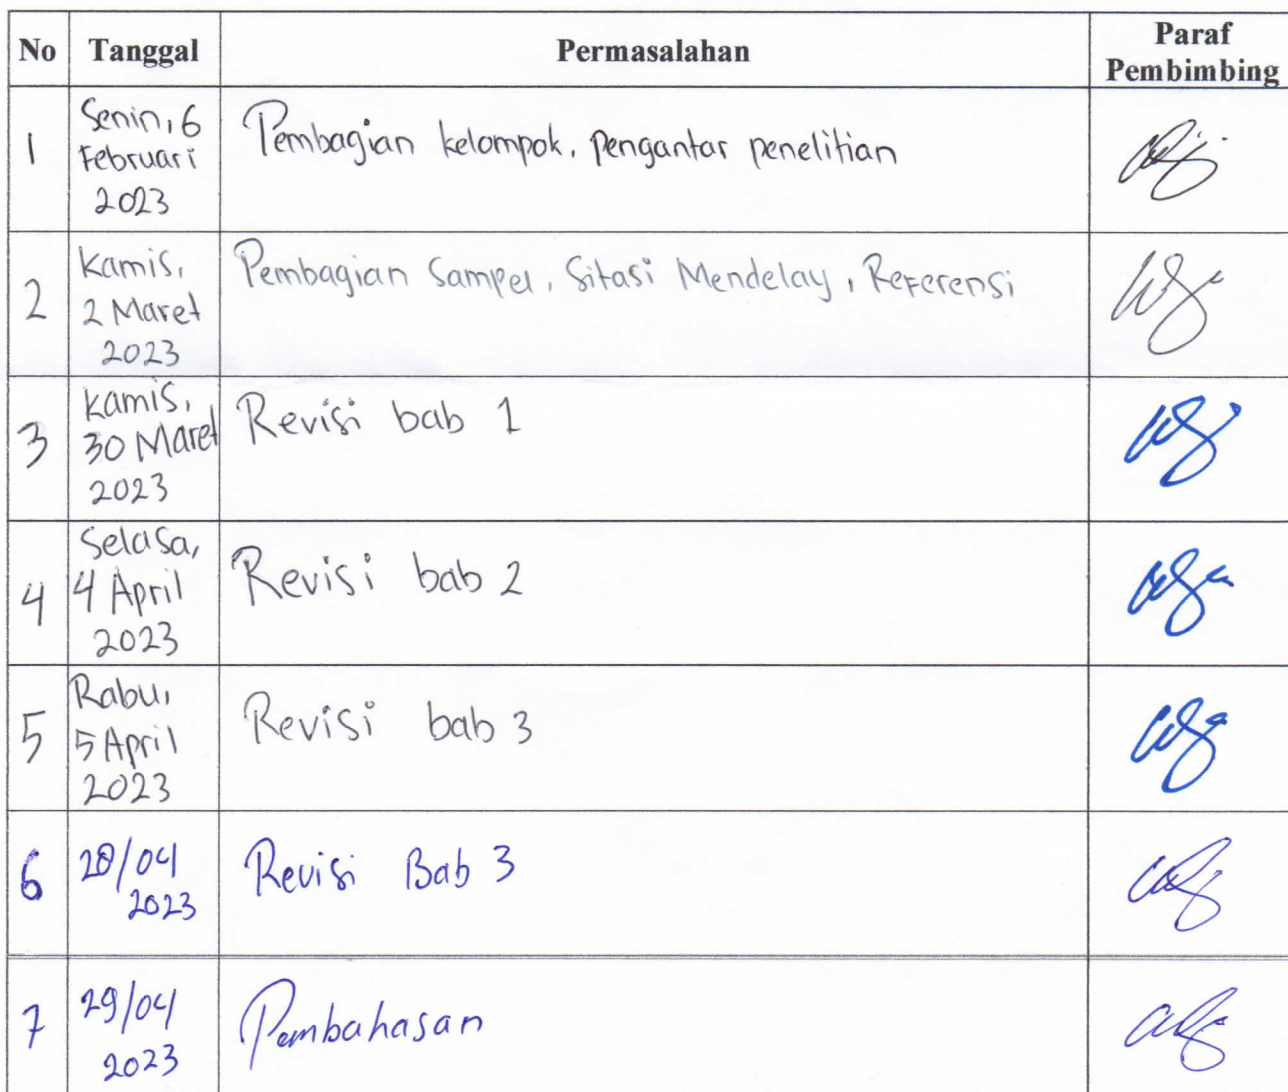 No Tanggal Permasalahan Paraf
Pembimbing
1 Senin, 6
Februari
2023
Pembagian kelompok, pengantar penelitian
2 Kamis,
2 Maret
2023
Pembagian Sampel, Sitasi Mendelay, Referensi
3 Kamis,
30 Maret
2023
Revisi bab 1
4 Selasa,
4 April
2023
Revisi bab 2
5 Rabu,
5 April
2023
Revisi bab 3
6 28/04
2023
Revisi Bab 3
7 29/04
2023
Pembahasan